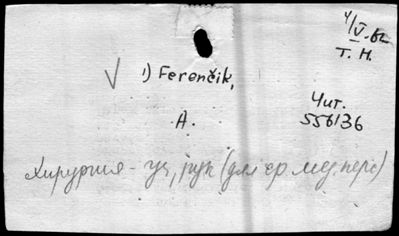 4/V-62
Т. Н.
1) Ferenčik,
А.
Чит.
556136
Хирургия - уч, рук (для ср мед. перс)